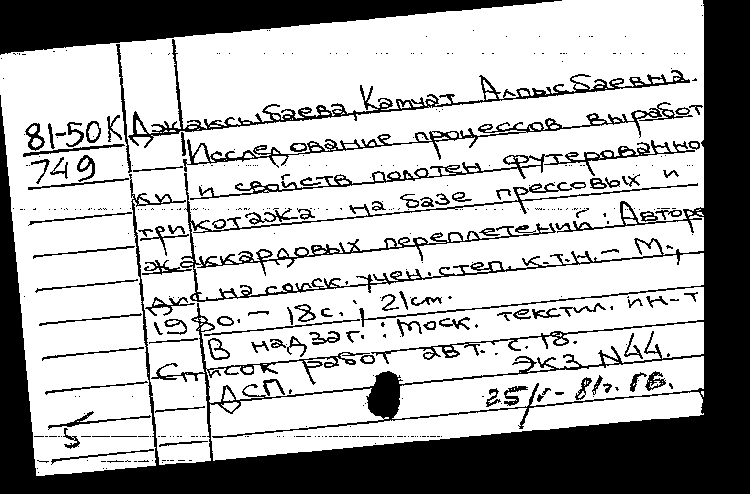 81-50К
749
Джаксыбаева, Камчат Алпысбаевна.
Исследование процессов выработ
ки и свойств полотен футерованно
трикотажа на базе прессовых и
жаккардовых переплетений: Авторе
дис. на соиск. учен. степ. к.т.н. - М.,
1980. - 18 с.; 21 cm.
В надзаг.: Моск. текстил. ин-т
Список работ авт.: с. 18.
ДСП.
экз N44.
25/V - 81г. ГВ.
5